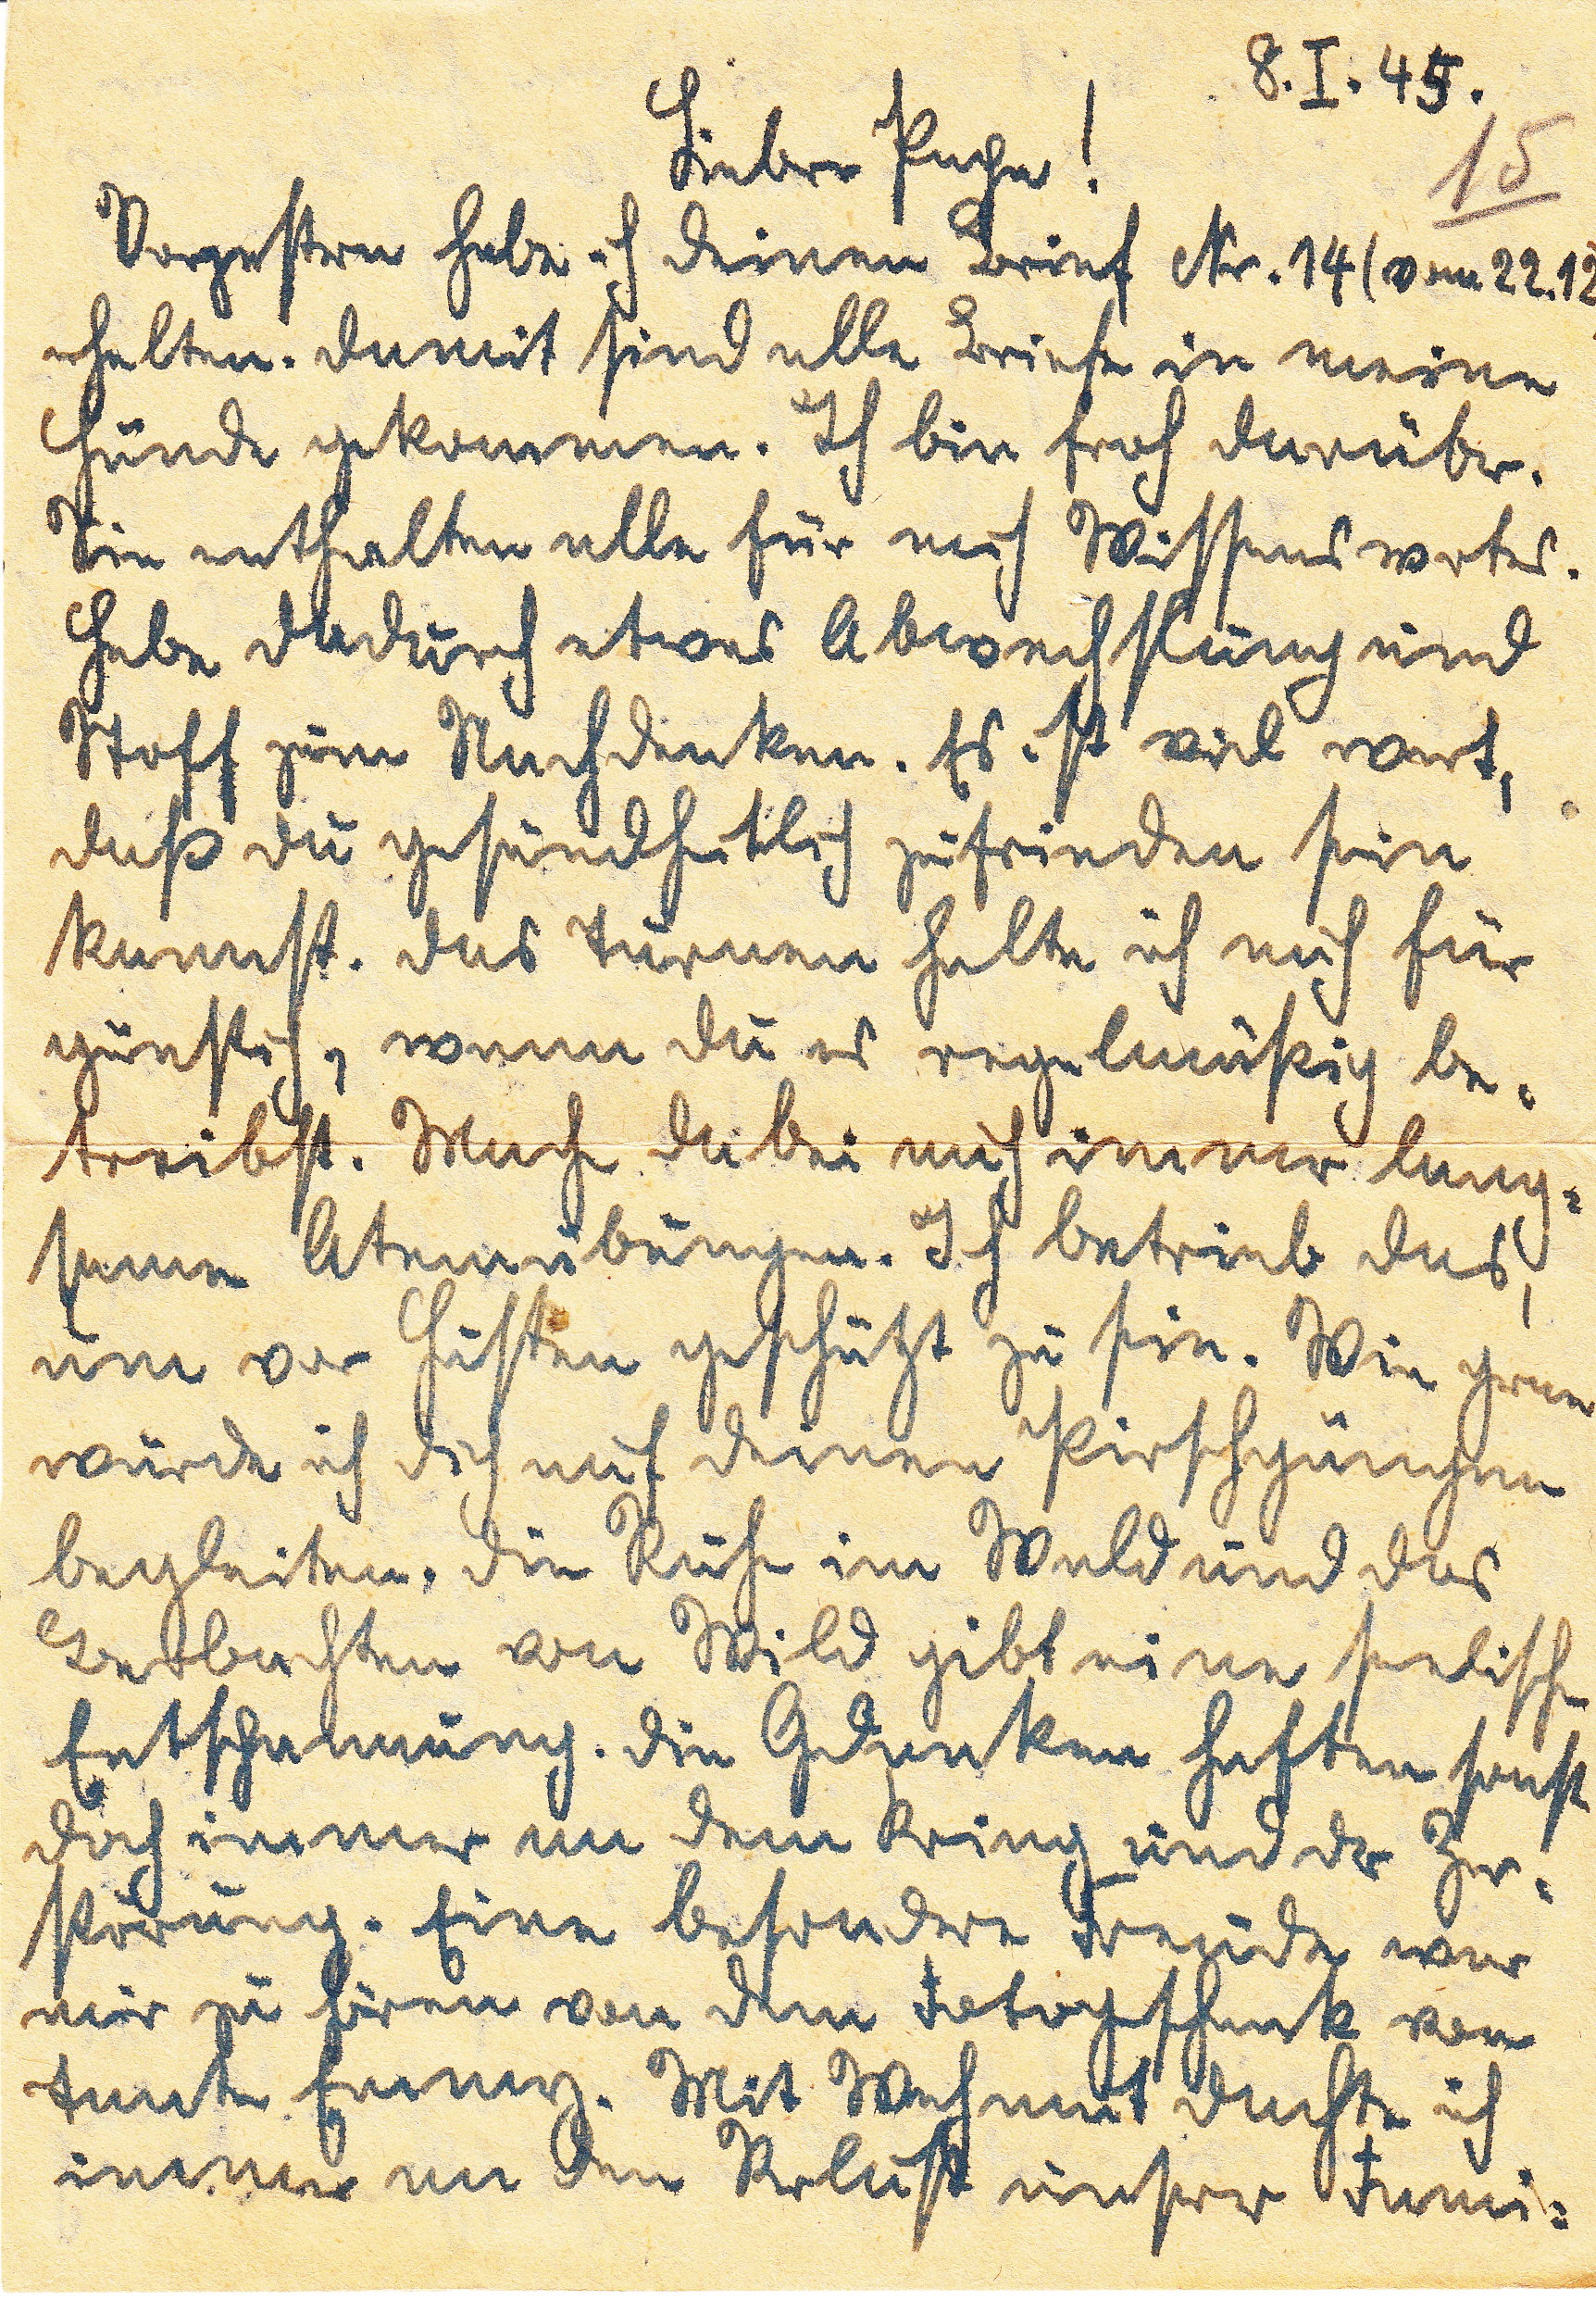 8. I. 45.
Lieber Papa!
15
Vorgestern habe ich deinen Brief Nr. 14 (vom 22.12
erhalten. Damit sind alle Briefe in meine
Hände gekommen. Ich bin froh darüber.
Sie enthalten alle für mich Wissenswertes.
Habe dadurch etwas Abwechslung und
Stoff zum Nachdenken. Es ist viel wert,
daß du gesundheitlich zufrieden sein
kannst. Das Turnen halte ich auch für
günstig, wenn du es regelmäßig be-
treibst. Mache dabei auch immer lang-
same Atemübungen. Ich betrieb das,
um vor Husten geschützt zu sein. Wie gerne
würde ich dich auf deinen Pirschgängen
begleiten. Die Ruhe im Wald und das
Beobachten von Wild gibt eine seelische
Entspannung. Die Gedanken haften sonst
doch immer an dem Krieg und der Zer-
störung. Eine besondere Freude war
mir zu hören von dem Fotogeschenk von
Tante Emmy. Mit Wehmut dachte ich
immer an den Verlust unserer Fami-